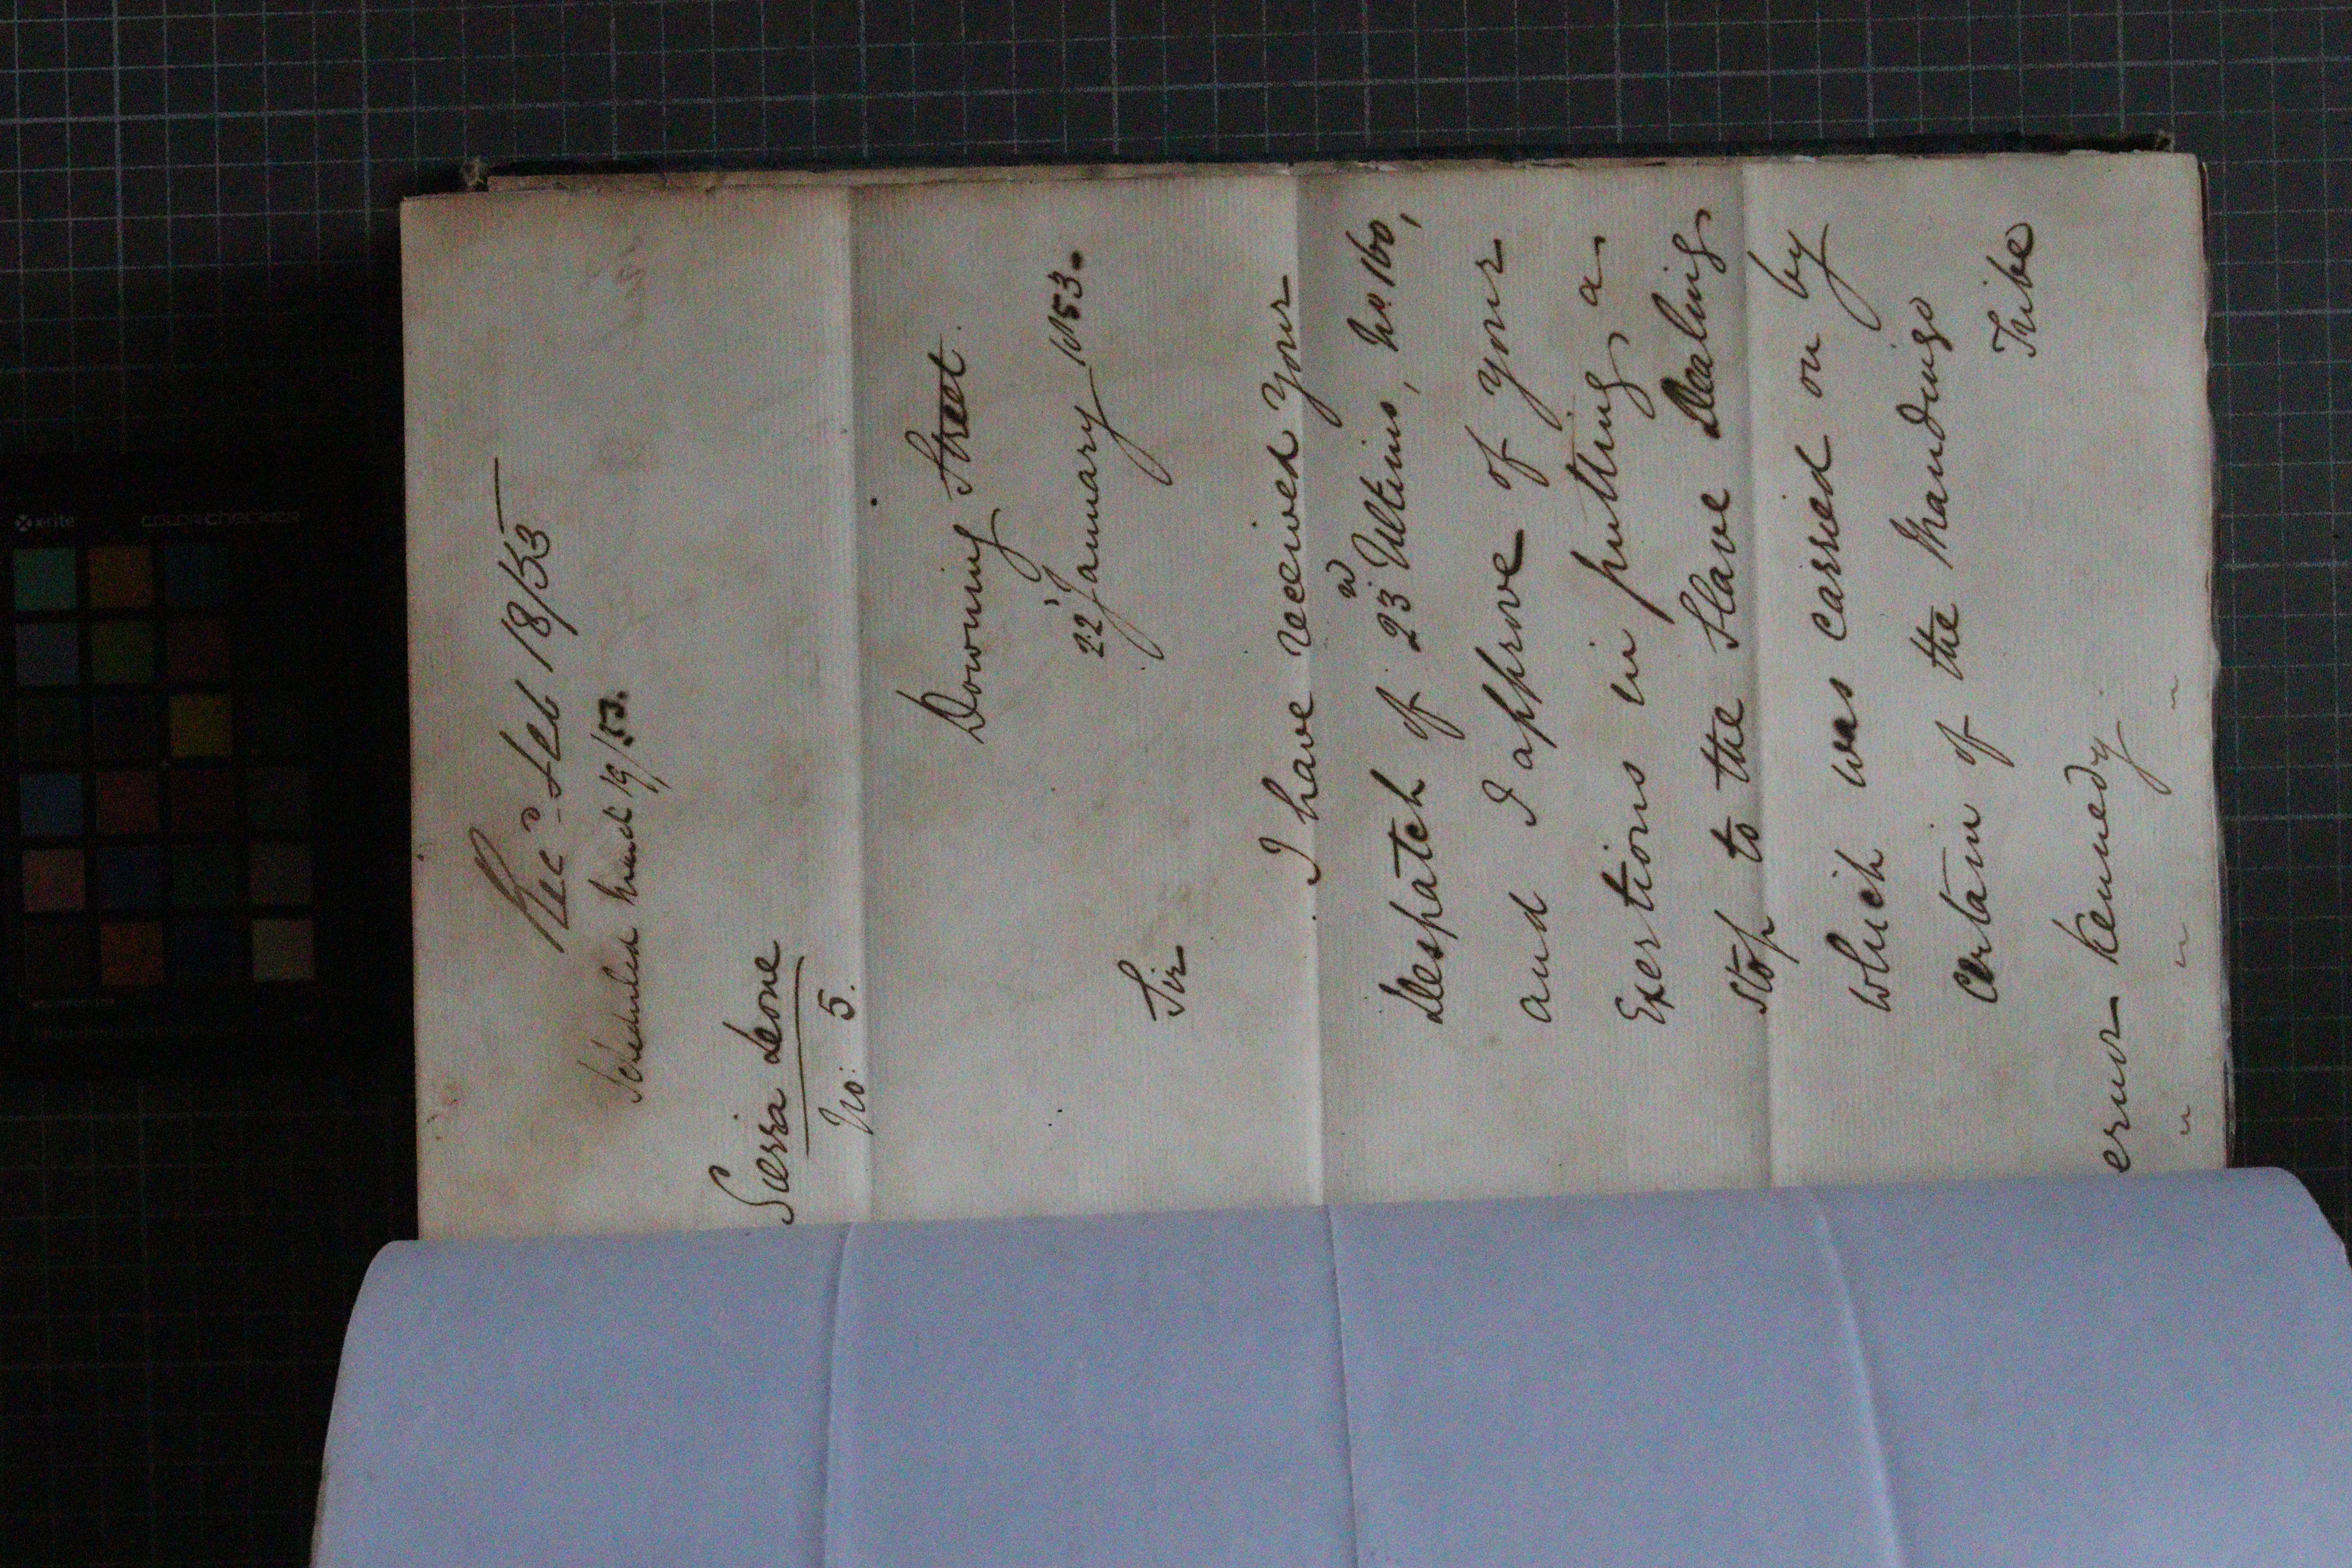 Recd Feb 18/53
Scheduled 19/53.
Sierra Leone
No: 5.
Downing Street.
22 January 1853.
Sir
I have received your
Despatch of 23d Ultimo, No. 160,
and I approve of your
Exertions in putting a
stop to the Slave Dealing
which was carried on by
certain of the Mandingo
Tribe
ernor Kennedy
" " "
x-rite
colorchecker